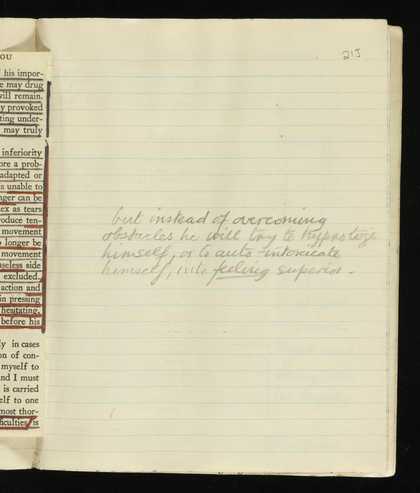 OU
his impor-
e may drug
will remain.
y provoked
ting under-
may truly
inferiority
ore a prob-
adapted or
s unable to
nger can be
ex as tears
roduce ten-
movement
longer be
movement
useless side
excluded.
action and
in pressing
hesitating,
before his
ly in cases
on of con-
myself to
nd I must
is carried
elf to one
most thor-
iculties is
213
but instead of overcoming
obstacles he will try to hypnotize
himself, or to auto-intoxicate
himself, into feeling superior.